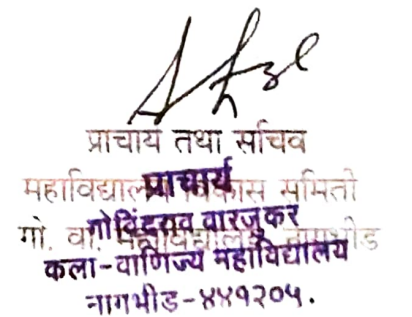 प्राचार्य तथा सचिव
महाविद्यालय विकास समिती
प्राचार्य
गो. वा. महाविद्यालय नागभीड
गोविंदराव वारजुकर
कला-वाणिज्य महाविद्यालय
नागभीड-४४१२०५.